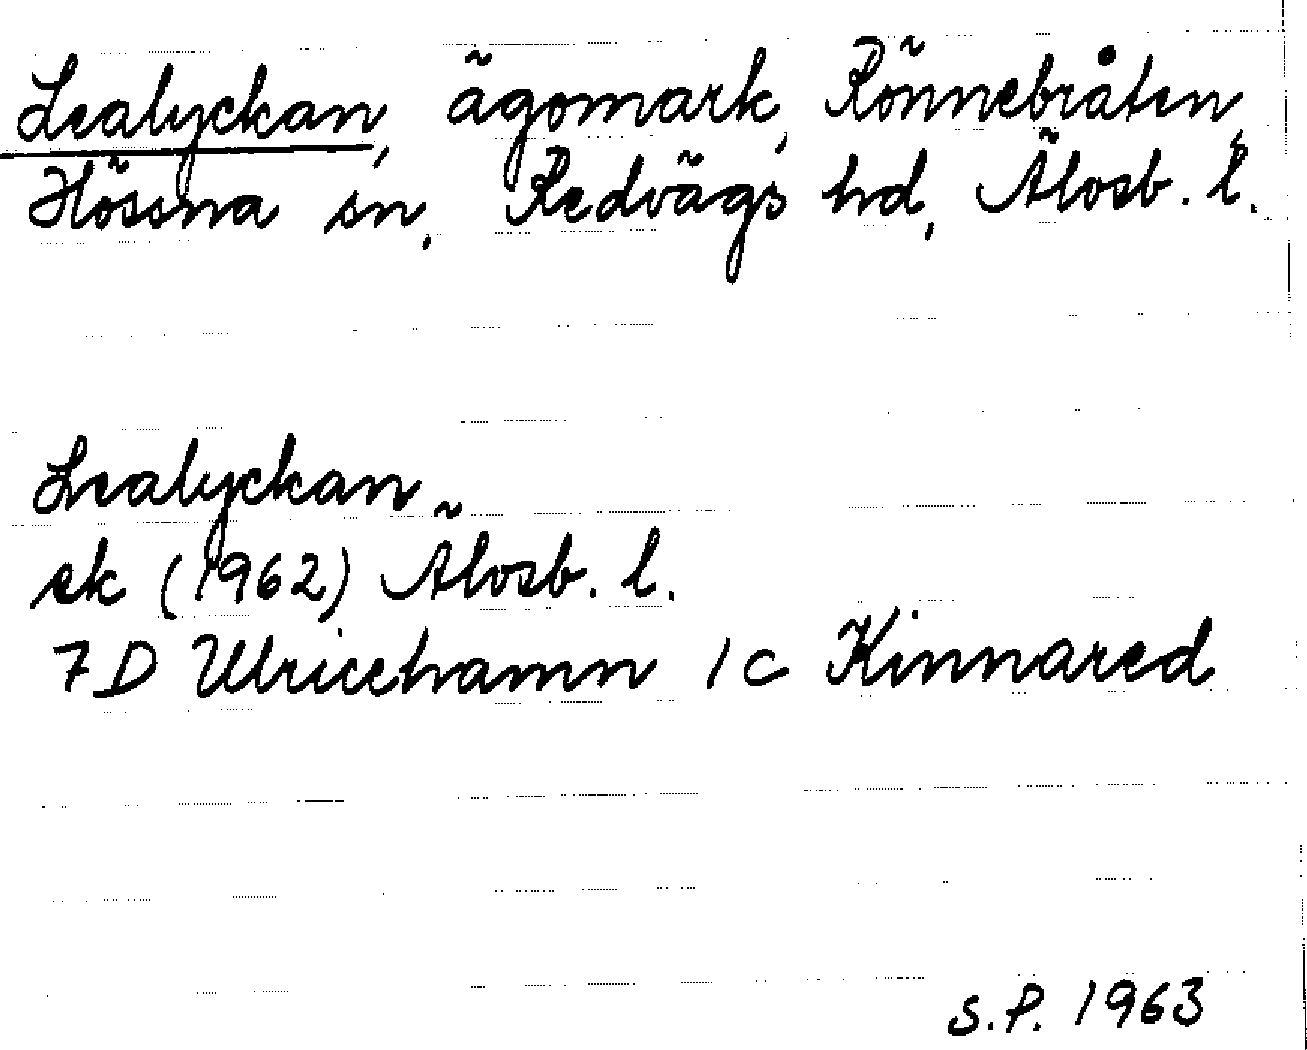 Lealyckan, ägomark, Rönnebråten,
Hössna sn, Redvägs hd, Älvsb. l.
Lealyckan
ek (1962) Älvsb. l.
7D Ulricehamn 1c Kinnared
S.P. 1963